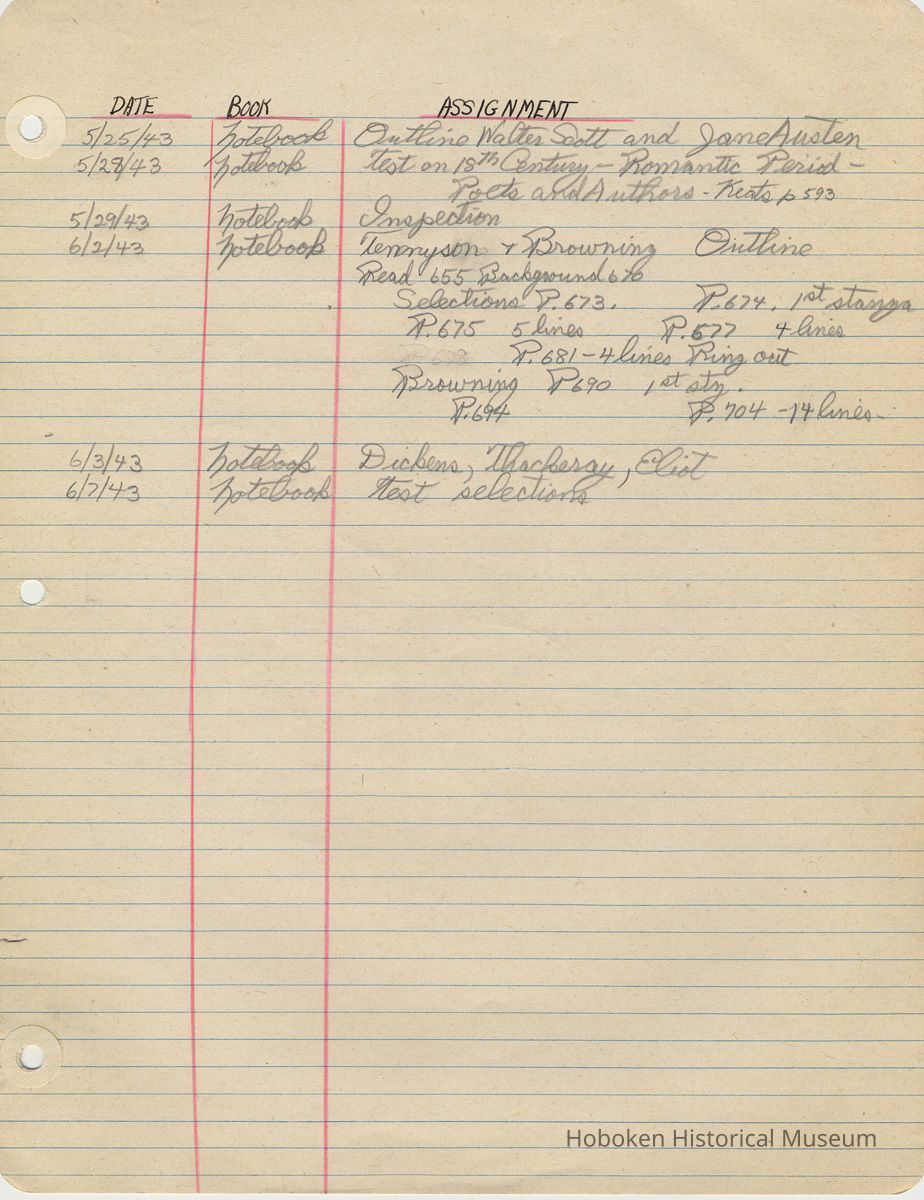 DATE BOOK ASSIGNMENT
5/25/43 Notebook Outline Walter Scott and Jane Austen
5/28/43 Notebook test on 18th Century - Romantic Period -
Poets and Authors - Keats p 593
5/29/43 Notebook Inspection
6/2/43 Notebook Tennyson + Browning Outline
Read 655 Background 670
Selections P. 673. P. 674. 1st stanza
P. 675 5 lines P. 677 4 lines
P. 681 - 4 lines Ring out
Browning P 690 1st stz.
P. 694 P. 704 - 14 lines-
6/3/43 Notebook Dickens, Thackeray, Eliot
6/7/43 Notebook test selections
Hoboken Historical Museum